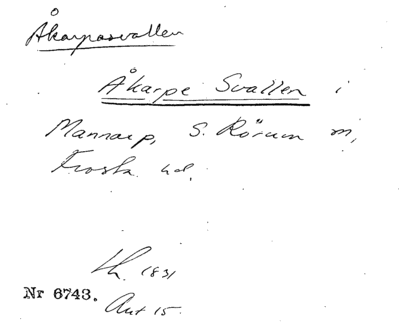 Åkarpasvallen
Åkarpe Svallen i
Mannarp, S. Rörum sn,
Frosta hd.
lh. 1831
Nr 6743.
Akt 15.